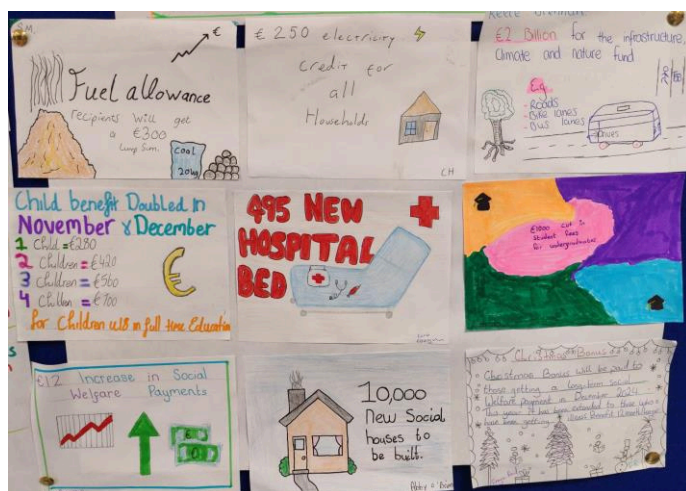 S.M.
€
Fuel allowance
recipients will get
a €300
Lump Sum.
Coal
20kg
€250 electricity
Credit for
all
Households
CH
€2 Billion for the infrastructure,
Climate and nature fund
Eg
- Roads
- Bike lanes
- Bus lanes
Child benefit Doubled in
November & December
1 Child = €280
2 Children = €420
3 Children = €560
4 Children = €700
for Children u18 in full time Education
495 NEW
HOSPITAL
BED
€1000 cut in
student fees
for undergraduates
€12 Increase in Social
Welfare Payments
10,000
New Social
houses to
be built.
Christmas Bonus
Christmas Bonus will be paid to
those getting a long-term social
Welfare payment in December 2024
this year it has been extended to those who
have been getting Illness Benefit 12 months